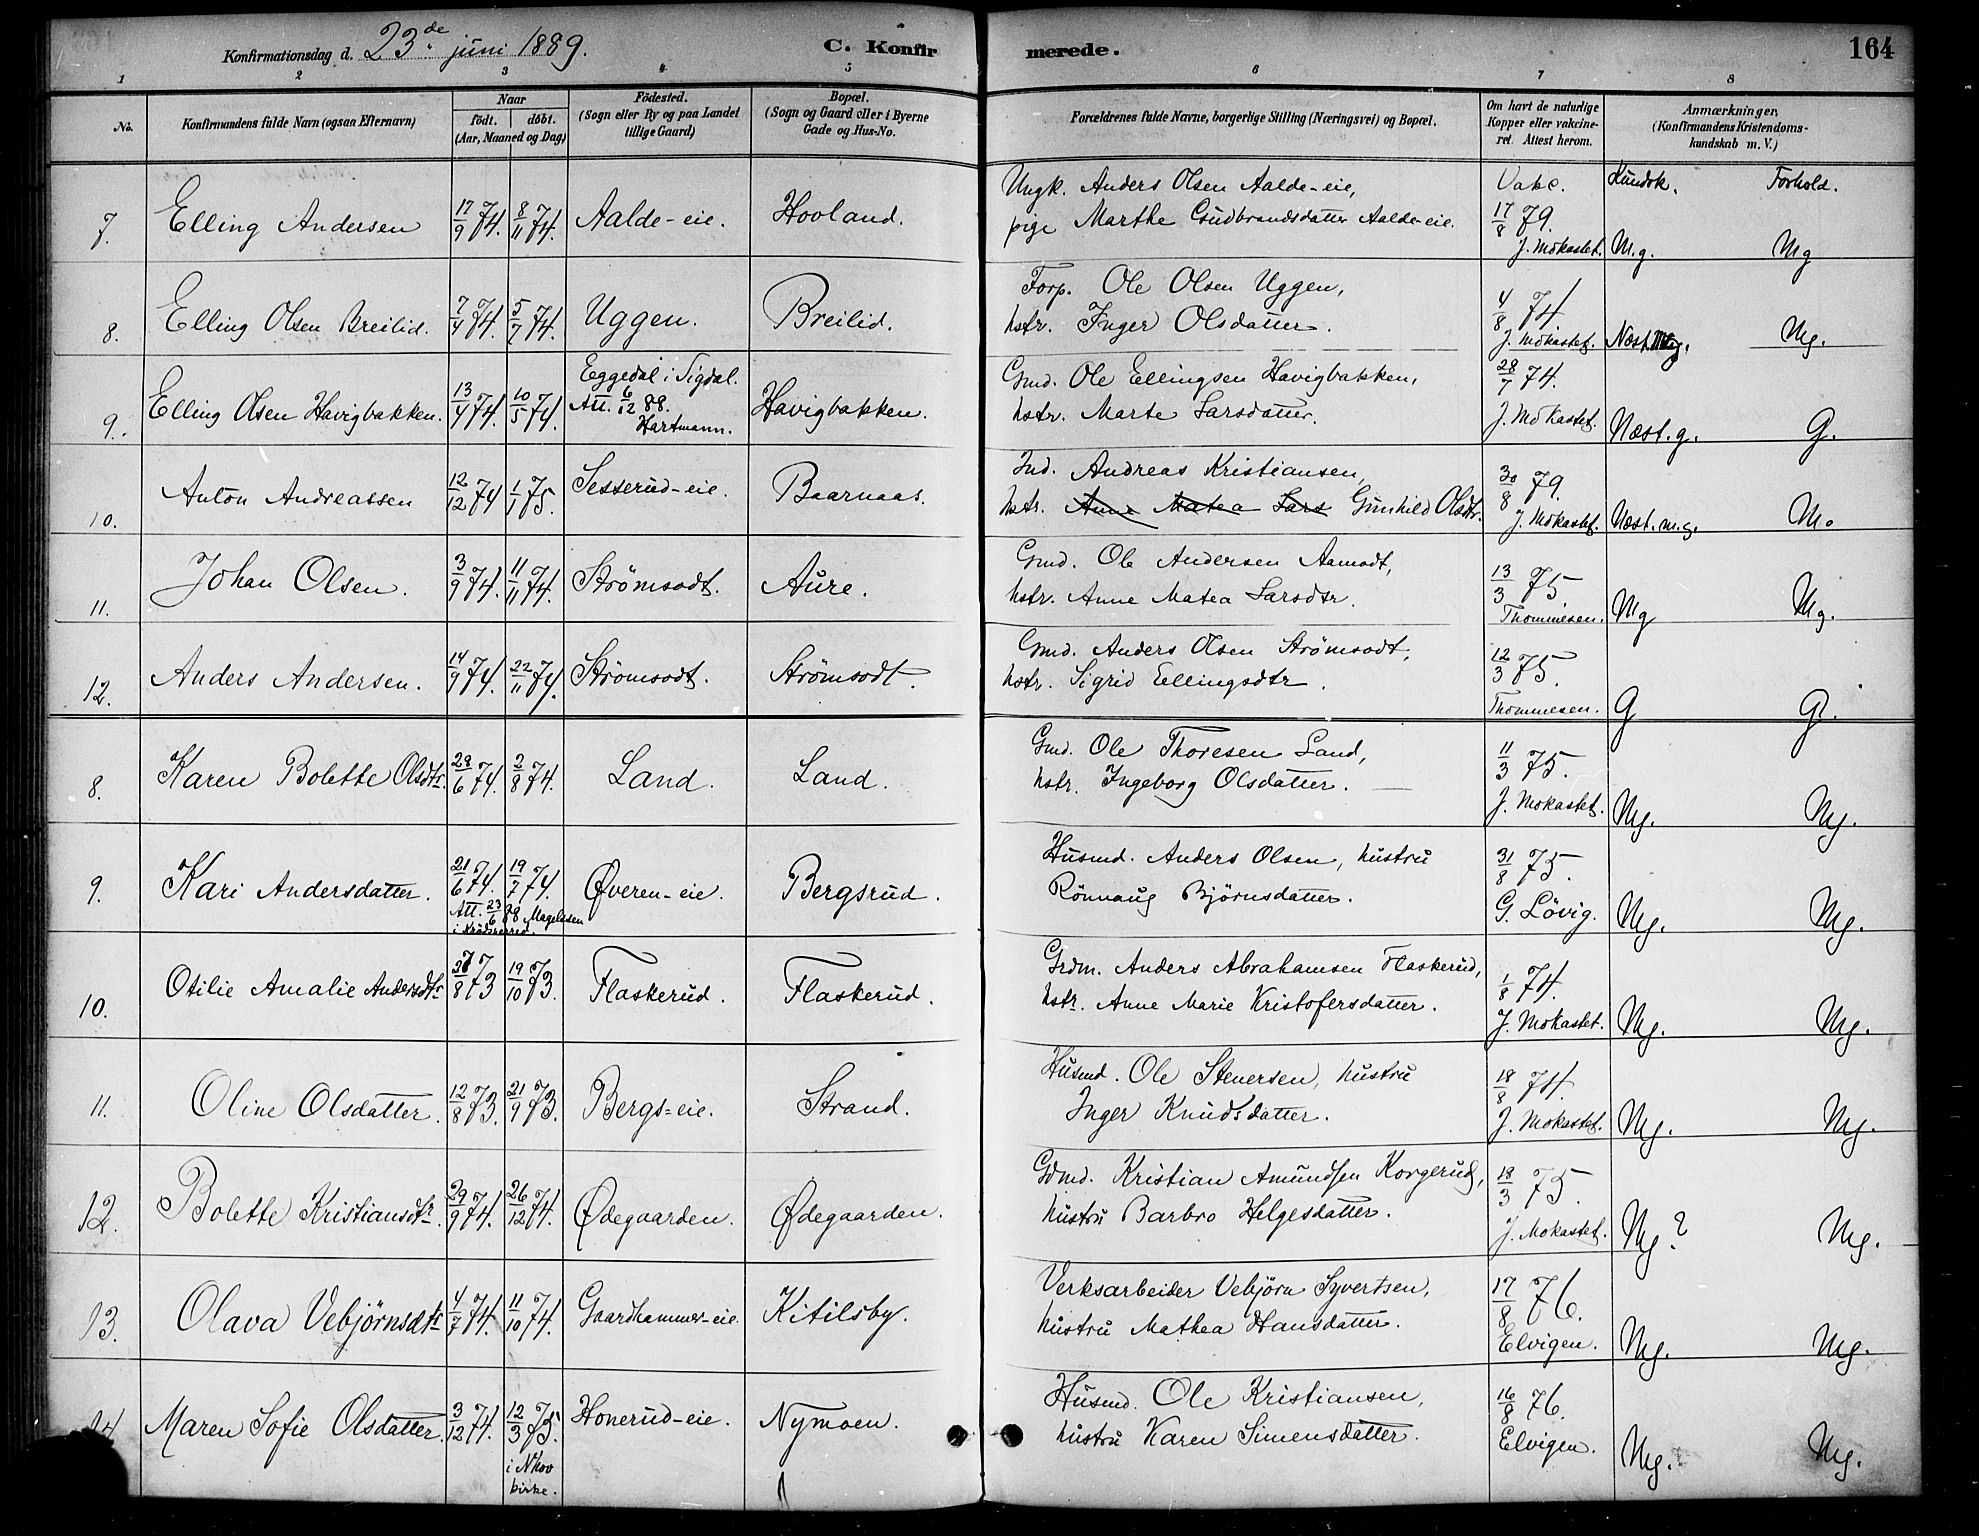 Konfirmationsdag d. 23de juni 1889. C. Konfirmerede. 164
1 2 3 4 5 6 7 8
No. Konfirmandens fulde Navn (ogsaa Efternavn) Naar födt. döbt. (Aar, Maaned og Dag) Födested. (Sogn eller By og paa Landet tillige Gaard) Bopæl. (Sogn og Gaard eller i Byerne Gade og Hus-No. Forældrenes fulde Navne, borgerlige Stilling (Næringsvei) og Bopæl. Om havt de naturlige Kopper eller vakcineret. Attest herom. Anmærkninger, (Konfirmandens Kristendomskundskab m. V.)
Ungk. Anders Olsen Aalde-eie, Vakc. Kundsk. Forhold.
7. Elling Andersen 17/9 74. 8/11 74. Aalde-eie. Hovland. pige Marthe Gudbrandsdatter Aalde-eie. 17/8 79. J. Mokastet. M.g. Mg
Forp. Ole Olsen Uggen,
8. Elling Olsen Breilid. 7/4 74. 5/7 74. Uggen. Breilid. hstr. Inger Olsdatter. 4/8 74 J. Mokastet. Næst. Mg. Mg.
Eggedal i Sigdal. Gmd. Ole Ellingsen Havigbakken, 28/7 74.
9. Elling Olsen Havigbakken. 13/4 74. 10/5 74. Att. 6/12 88. Hartmann. Havigbakken. hstr. Marte Larsdatter. J. Mokastet. Næst. g. G.
Ind. Andreas Kristiansen,
10. Anton Andreassen 12/12 74 1/1 75. Sesserud-eie. Baarnaas. hstr. Anne Matea Lars Gunhild Olsdtr. 30/8 79. J. Mokastet. Næst. m.g. M.
Gmd. Ole Andersen Aamodt,
11. Johan Olsen. 3/9 74. 11/11 74. Strømsodt. Aure. hstr. Anne Matea Larsdtr. 13/3 75 Thommesen. Mg Mg.
Gmd. Anders Olsen Strømsodt,
12. Anders Andersen. 14/9 74. 22/11 74. Strømsodt. Strømsodt. hstr. Sigrid Ellingsdtr. 12/3 75. Thommesen. G G.
Gmd. Ole Thoresen Land,
8. Karen Bolette Olsdtr. 28/6 74. 2/8 74. Land. Land. hstr. Ingeborg Olsdatter. 11/3 75. J. Mokastet. Mg. Mg.
Husmd. Anders Olsen, hustru
9. Kari Andersdatter. 21/6 74. 19/7 74. Øveren-eie. Bergsrud. Rönnaug Bjørnsdatter. 31/8 75. G. Lövig. Mg. Mg.
Att. 23/6 88 Magelssen
i Krödsherred.
Grdm. Anders Abrahamsen Flaskerud,
10. Otilie Amalie Andersdtr 73 19/10 73. Flaskerud. Flaskerud. hstr. Anne Marie Kristofersdatter. 1/8 74. J. Mokastet. Mg. Mg.
Husmd. Ole Stenersen, hustru
11. Oline Olsdatter. 12/8 73. 21/9 73. Bergs-eie. Strand. Inger Knudsdatter. 18/8 74. J. Mokastet. Mg. Mg.
Gdmd. Kristian Amundsen Korgerud,
12. Bolette Kristiansdtr. 29/9 74. 26/12 74. Ødegaarden. Ødegaarden. hustru Barbro Helgesdatter. 18/3 75. J. Mokastet. Mg.? Mg.
Verksarbeider Vebjörn Syvertsen,
13. Olava Vebjørnsdtr 4/7 74. 11/10 74. Gaardhammer-eie. Kitilsby. hustru Mathea Hansdatter. 17/8 76. Elvigen. Mg. Mg.
Husmd. Ole Kristiansen,
14 Maren Sofie Olsdatter. 3/12 74. 12/3 75. Honerud-eie. Nymoen. hustru Karen Simensdatter. 16/8 76. Elvigen. Mg. Mg.